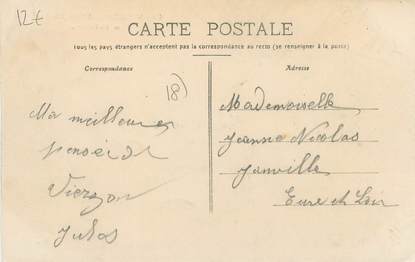 12€
CARTE POSTALE
Tous les pays étrangers n'acceptent pas la correspondance au recto (se renseigner à la poste)
Correspondance
Adresse
18)
Ma meilleure
pensée de
Vierzon
Jules
Mademoiselle
Jeanne Nicolas
Janville
Eure et Loir